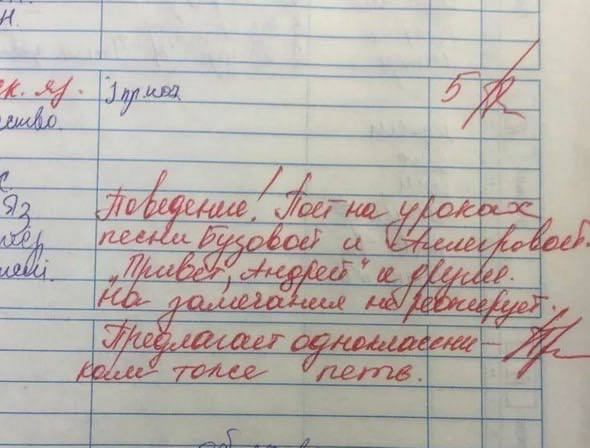 Н.
ск. яз. Упр. 5
ество.
яз Поведение! Поёт на уроках
песни Бузовой и Аллегровой.
"Привет, Андрей" и другие.
На замечания не реагирует.
Предлагает одноклассни-
кам тоже петь.